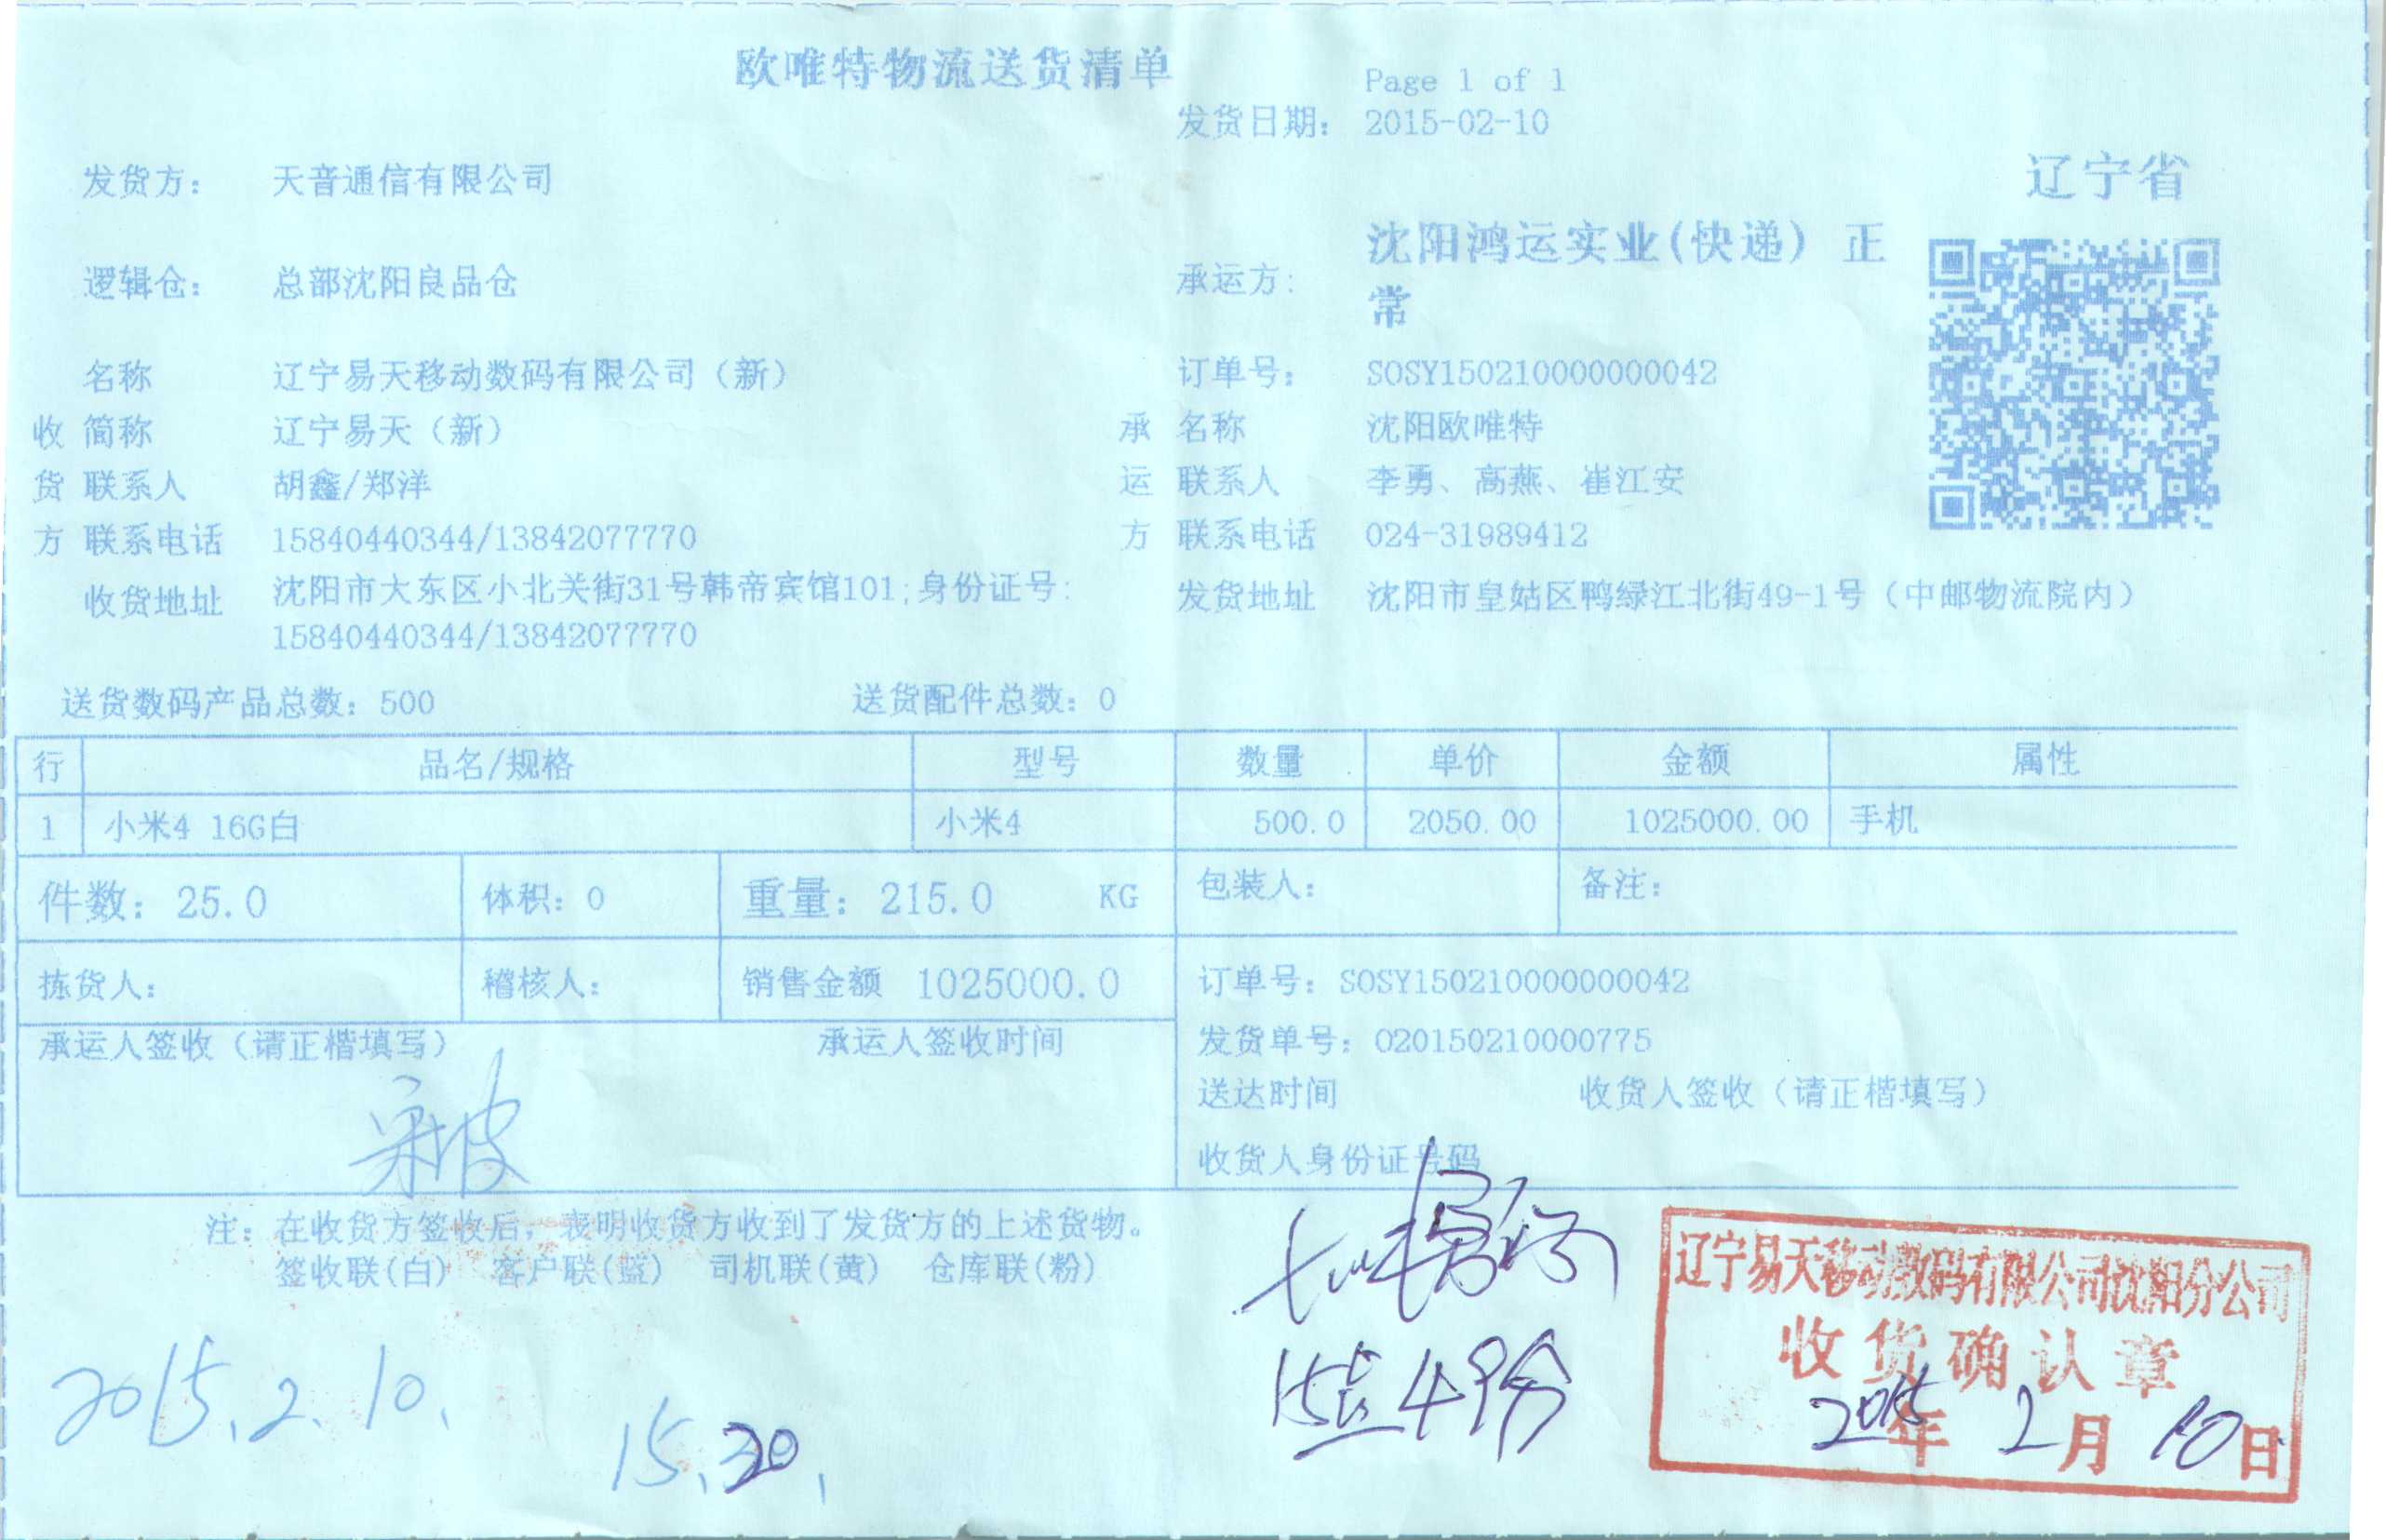 欧唯特物流送货清单
Page 1 of 1
发货日期： 2015-02-10
发货方： 天音通信有限公司
辽宁省
逻辑仓： 总部沈阳良品仓
承运方： 沈阳鸿运实业(快递) 正
常
名称 辽宁易天移动数码有限公司（新） 订单号： SOSY150210000000042
收 简称 辽宁易天（新） 承 名称 沈阳欧唯特
货 联系人 胡鑫/郑洋 运 联系人 李勇、高燕、崔江安
方 联系电话 15840440344/13842077770 方 联系电话 024-31989412
收货地址 沈阳市大东区小北关街31号韩帝宾馆101;身份证号: 发货地址 沈阳市皇姑区鸭绿江北街49-1号（中邮物流院内）
15840440344/13842077770
送货数码产品总数：500 送货配件总数：0
行 品名/规格 型号 数量 单价 金额 属性
1 小米4 16G白 小米4 500.0 2050.00 1025000.00 手机
件数：25.0 体积：0 重量：215.0 KG 包装人： 备注：
拣货人： 稽核人： 销售金额 1025000.0 订单号：SOSY150210000000042
承运人签收（请正楷填写） 承运人签收时间 发货单号：O20150210000775
送达时间 收货人签收（请正楷填写）
收货人身份证号码
注：在收货方签收后，表明收货方收到了发货方的上述货物。
签收联(白) 客户联(蓝) 司机联(黄) 仓库联(粉)
辽宁易天移动数码有限公司沈阳分公司
收货确认章
2015年 2月 10日
15点49分
2015.2.10.